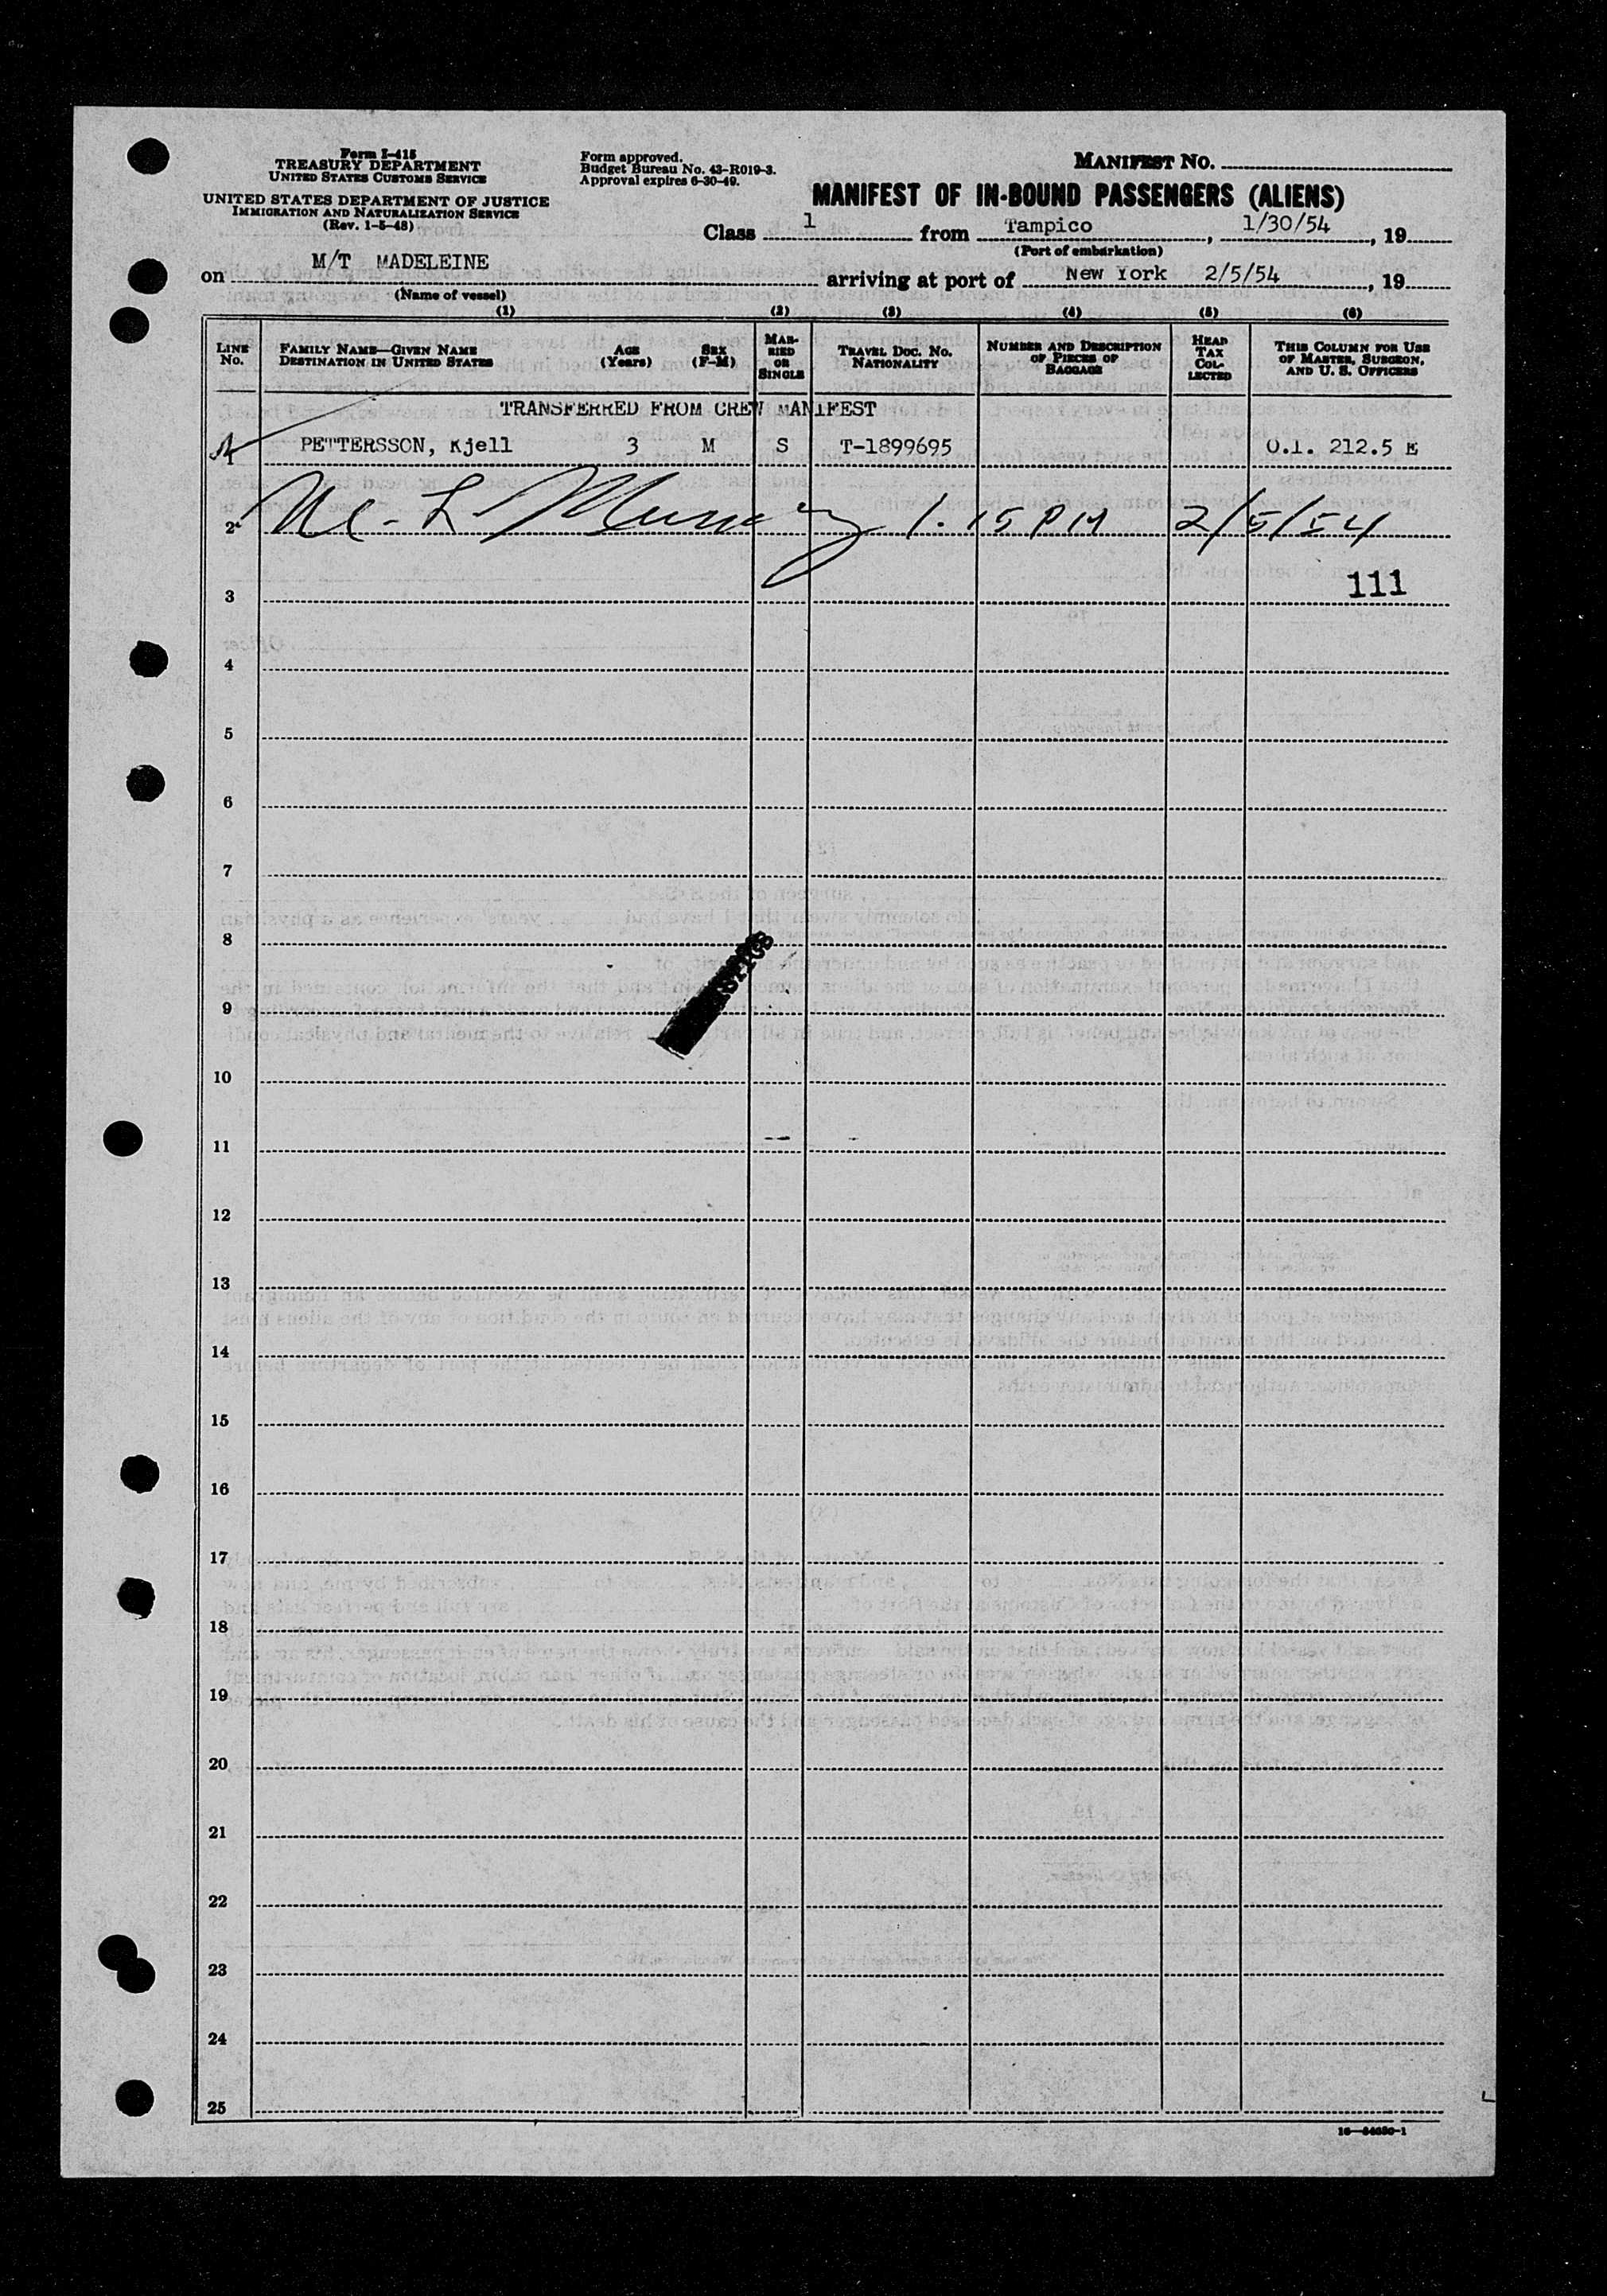 Form I-415
TREASURY DEPARTMENT
UNITED STATES CUSTOMS SERVICE
UNITED STATES DEPARTMENT OF JUSTICE
IMMIGRATION AND NATURALIZATION SERVICE
(Rev. 1-5-48)
Form approved.
Budget Bureau No. 43-R019-3.
Approval expires 6-30-49.
MANIFEST NO.
MANIFEST OF IN-BOUND PASSENGERS (ALIENS)
Class 1 from Tampico, 1/30/54, 19
(Port of embarkation)
on M/T MADELEINE arriving at port of New York 2/5/54, 19
(Name of vessel)
(1) (2) (3) (4) (5) (6)
LINE No. FAMILY NAME—GIVEN NAME DESTINATION IN UNITED STATES AGE (Years) SEX (F-M) MARRIED OR SINGLE TRAVEL DOC. NO. NATIONALITY NUMBER AND DESCRIPTION OF PIECES OF BAGGAGE HEAD TAX COLLECTED THIS COLUMN FOR USE OF MASTER, SURGEON, AND U. S. OFFICERS
TRANSFERRED FROM CREW MANIFEST
1 PETTERSSON, Kjell 3 M S T-1899695 O.I. 212.5 E
2 1.15 PM 2/5/54
111
3
4
5
6
7
8
9
10
11
12
13
14
15
16
17
18
19
20
21
22
23
24
25